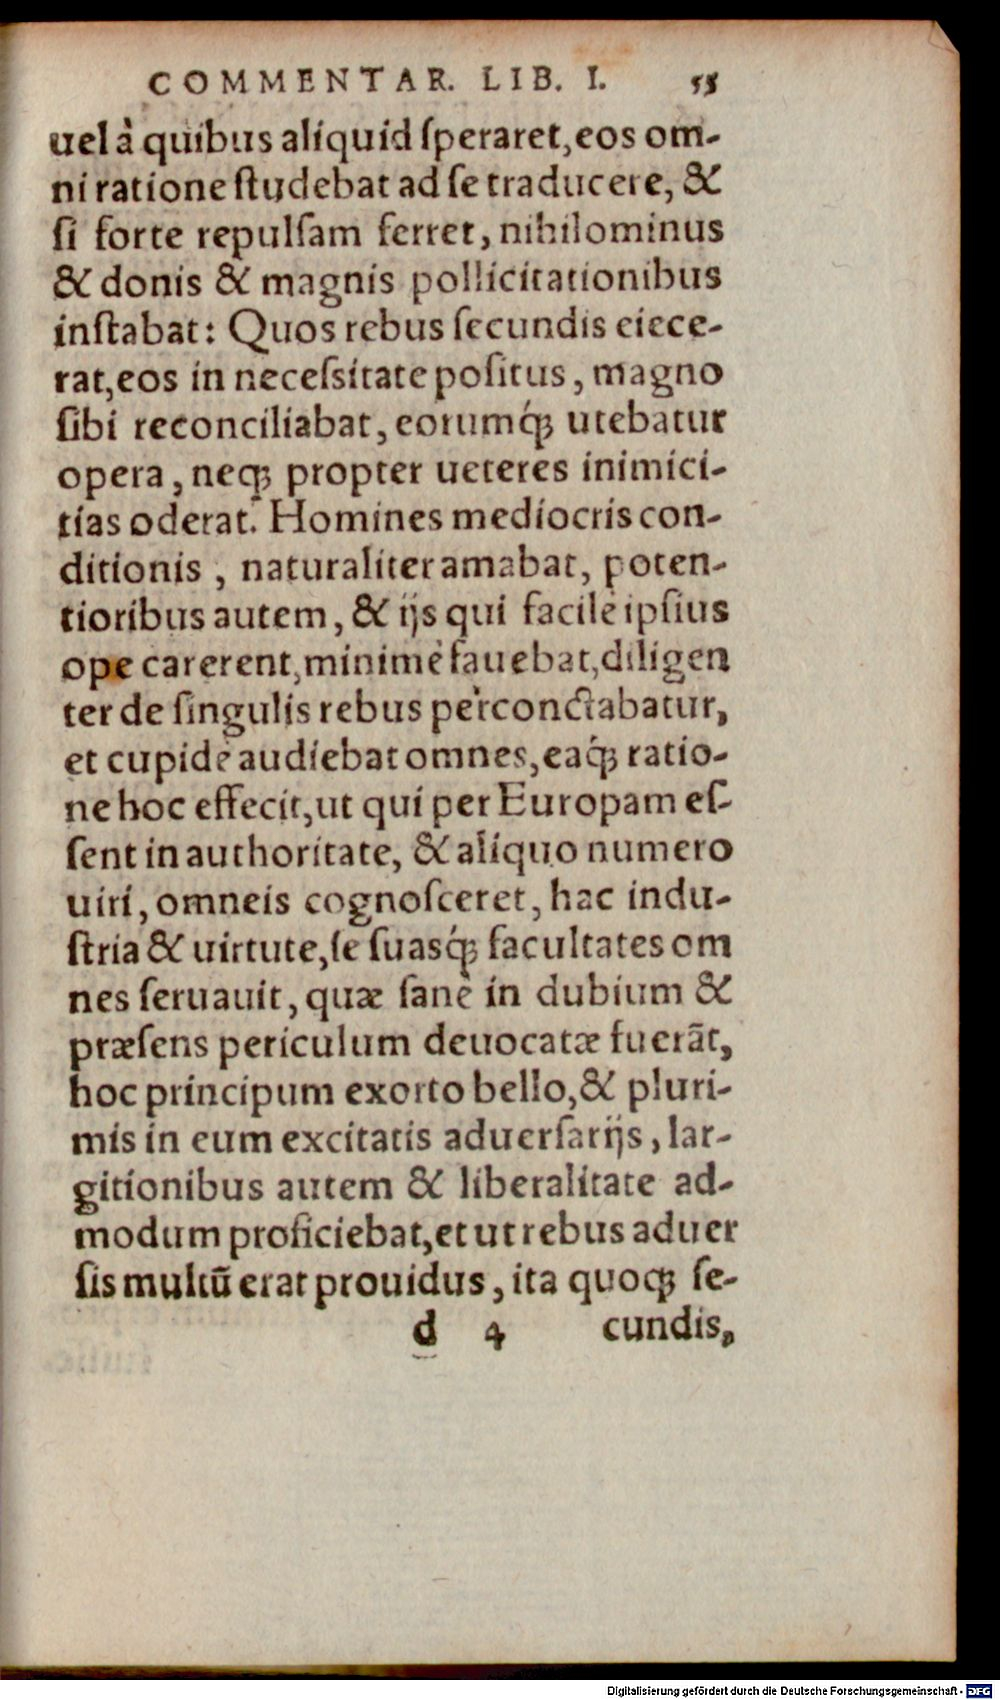 COMMENTAR. LIB. I. 55
uel à quibus aliquid ſperaret, eos om-
ni ratione ſtudebat ad ſe traducere, &
ſi forte repulſam ferret, nihilominus
& donis & magnis pollicitationibus
inſtabat: Quos rebus ſecundis eiece-
rat, eos in neceſsitate poſitus, magno
ſibi reconciliabat, eorumq́; utebatur
opera, neq; propter ueteres inimici-
tias oderat. Homines mediocris con-
ditionis, naturaliter amabat, poten-
tioribus autem, & ijs qui facilè ipſius
ope carerent, minimè fauebat, diligen
ter de ſingulis rebus perconctabatur,
et cupidè audiebat omnes, eaq́; ratio-
ne hoc effecit, ut qui per Europam eſ-
ſent in authoritate, & aliquo numero
uiri, omneis cognoſceret, hac indu-
ſtria & uirtute, ſe ſuasq́; facultates om
nes ſeruauit, quæ ſanè in dubium &
præſens periculum deuocatæ fuerāt,
hoc principum exorto bello, & pluri-
mis in eum excitatis aduerſarijs, lar-
gitionibus autem & liberalitate ad-
modum proficiebat, et ut rebus aduer
ſis multū erat prouidus, ita quoq; ſe-
d 4 cundis,
Digitalisierung gefördert durch die Deutsche Forschungsgemeinschaft - DFG